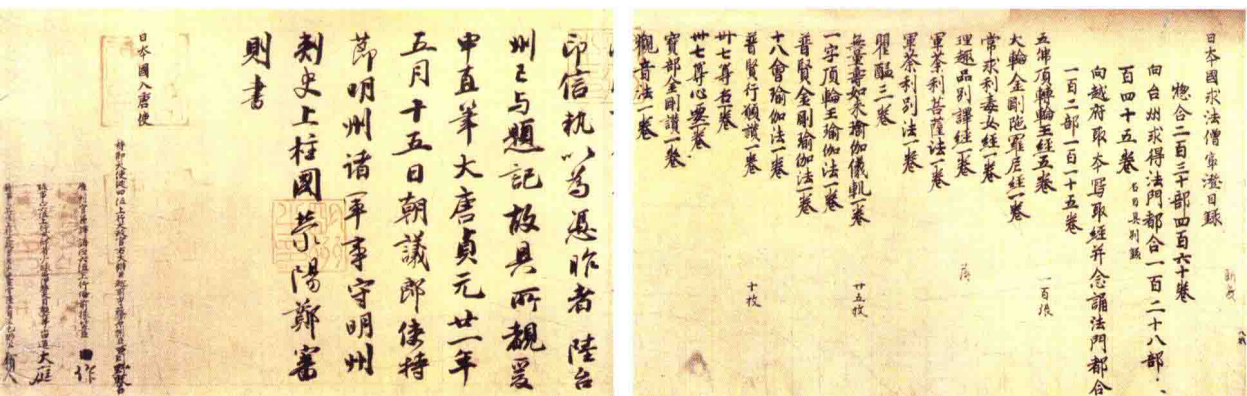 日本國求法僧最澄目録
惣合二百三十部四百六十卷
向台州求得法門都合一百二十八部三
百四十五卷 名目具別録
向越府取本寫取經并念誦法門都合
一百二部一百一十五卷
五佛頂轉輪王經五卷 一百張
大輪金剛陀羅尼經一卷
常求利毒女經一卷
理趣品別譯經一卷
軍荼利菩薩法一卷
軍荼利別法一卷
瞿醯三卷
無量壽如來瑜伽儀軌一卷 廿五枚
一字頂輪王瑜伽法一卷
普賢金剛瑜伽法一卷
十八會瑜伽法一卷
普賢行願讃一卷 十枚
卅七尊名一卷
卅七尊心要一卷
寶部金剛讃一卷
觀音法一卷
印信執以為憑昨者陸台
州已与題記故具所覩爰
申直筆大唐貞元廿一年
五月十五日朝議郎使持
節明州諸軍事守明州
刺史上柱國榮陽鄭審
則書
日本國入唐使
持節大使從四位上行大政官右大辨